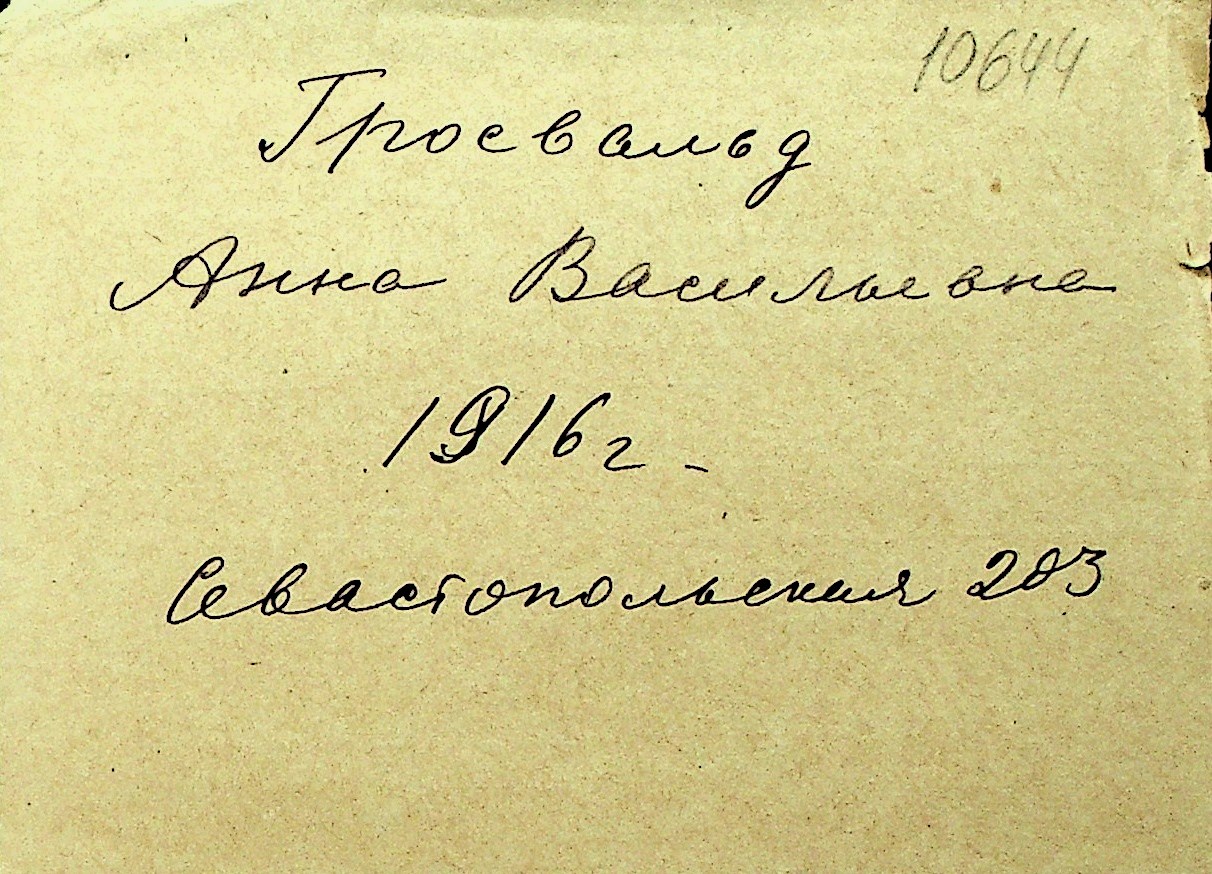 10644
Гросвальд
Анна Васильевна
1916г.
Севастопольская 203